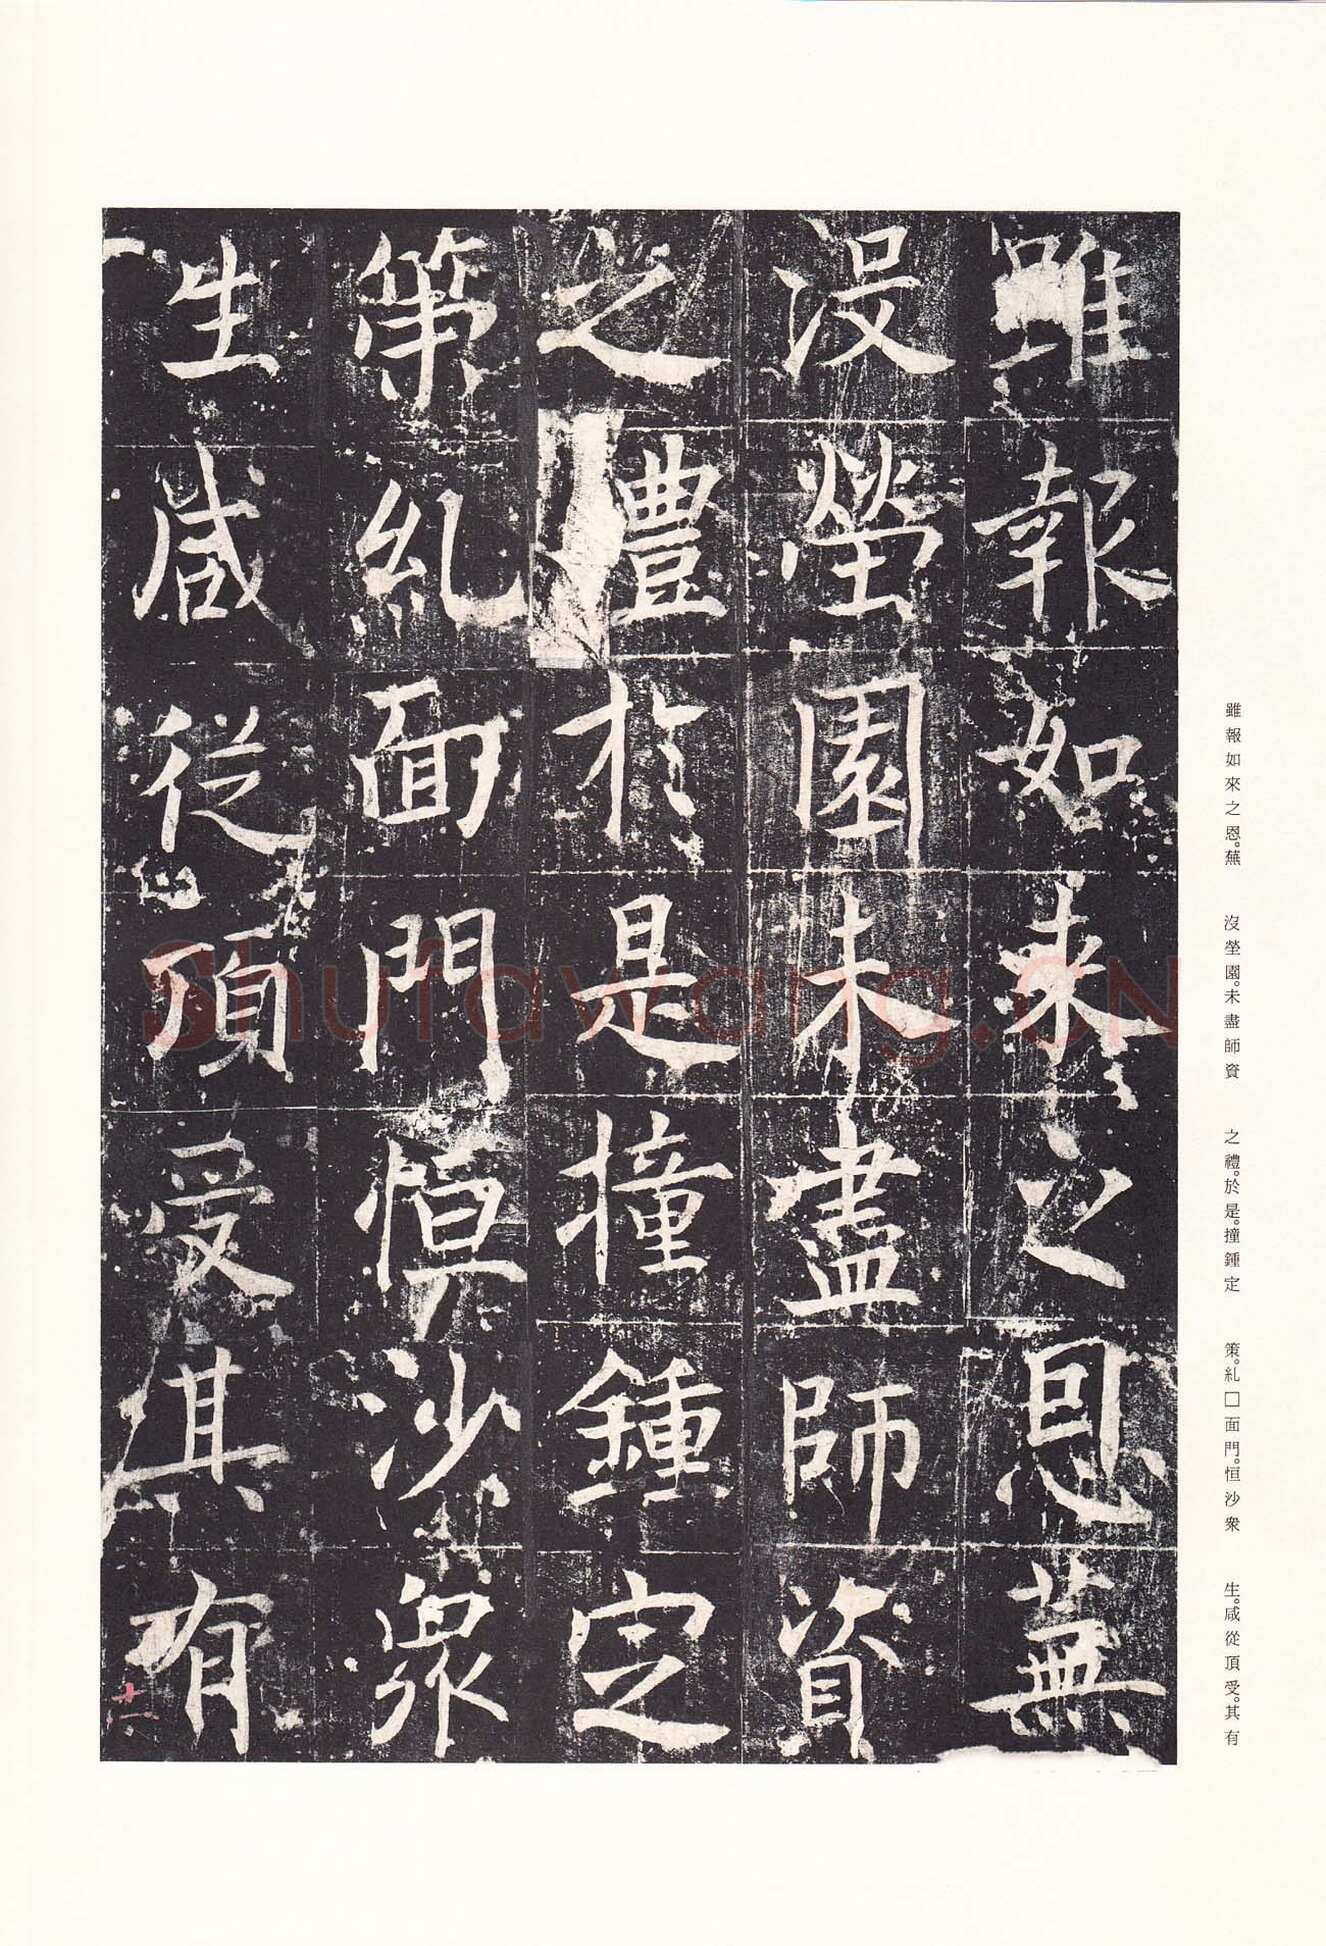 雖報如來之恩蕪
沒塋園未盡師資
之禮於是撞鍾定
策糺面門恒沙眾
生咸從頂受其有
十一
雖報如來之恩。蕪 沒塋園。未盡師資 之禮。於是。撞鍾定 策。糺□面門。恒沙衆 生。咸從頂受。其有
Shufawang.CN